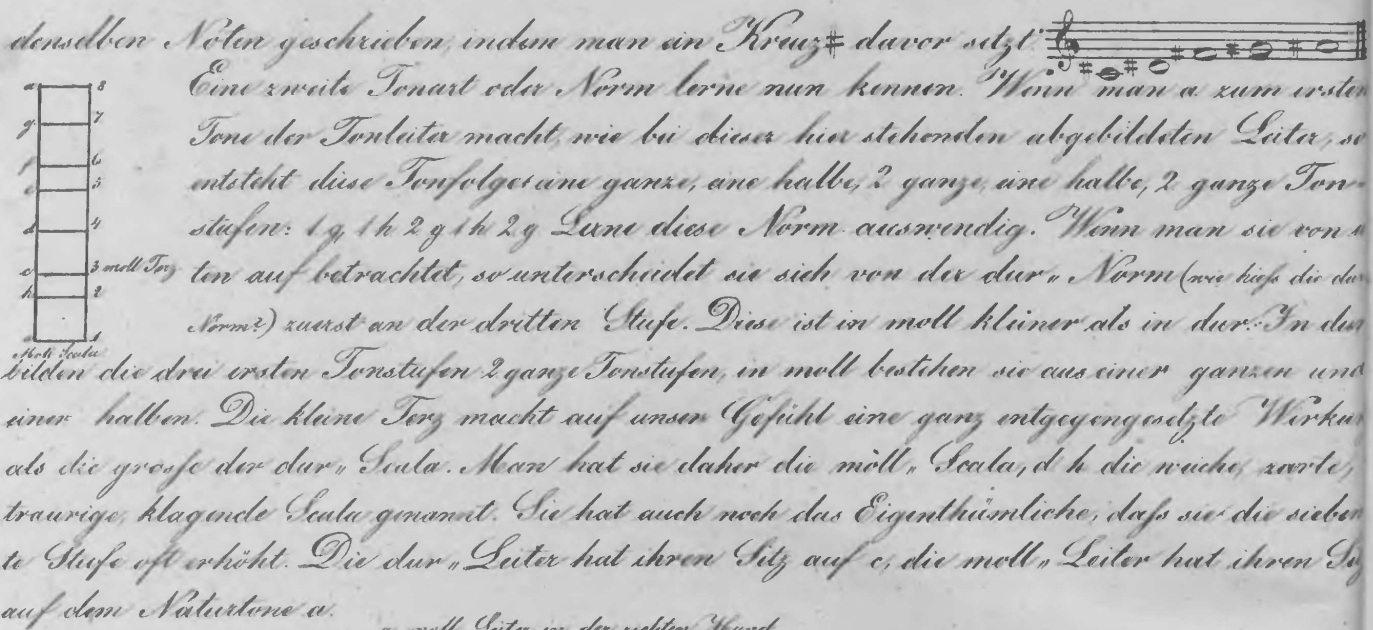 denselben Noten geschrieben, indem man ein Kreuz ♯ davor setzt:
Eine zweite Tonart oder Norm lerne nun kennen. Wenn man a zum ersten
Tone der Tonleiter macht, wie bei dieser hier stehenden abgebildeten Leiter, so
entsteht diese Tonfolge: eine ganze, eine halbe, 2 ganze, eine halbe, 2 ganze Ton-
stufen: 1 g, 1 h 2 g 1 h 2 g Lerne diese Norm auswendig. Wenn man sie von
ten auf betrachtet, so unterscheidet sie sich von der dur„ Norm (wie hieß die dur
Norm?) zuerst an der dritten Stufe. Diese ist in moll kleiner als in dur. In dur
a 8
g 7
f 6
e 5
d 4
c 3 moll Terz
h 2
a 1
Moll Scala
bilden die drei ersten Tonstufen 2 ganze Tonstufen, in moll bestehen sie aus einer ganzen und
einer halben. Die kleine Terz macht auf unser Gefühl eine ganz entgegengesetzte Wirkun
als die grosse der dur„ Scala. Man hat sie daher die moll„ Scala, d h die weiche, zarte,
traurige, klagende Scala genannt. Sie hat auch noch das Eigenthümliche, daß sie die sieben
te Stufe oft erhöht. Die dur„ Leiter hat ihren Sitz auf c, die moll„ Leiter hat ihren Si
auf dem Naturtone a.
a moll Leiter in der rechten Hand